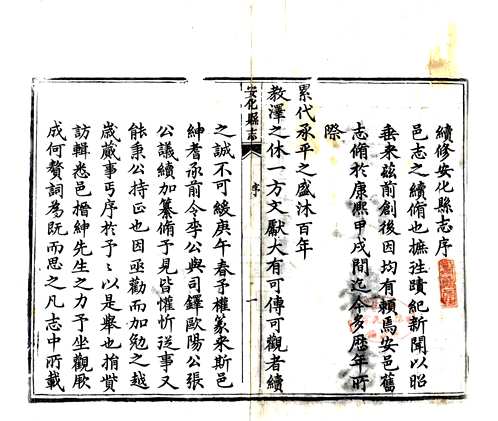 續修安化縣志序
邑志之續脩也摭往蹟紀新聞以昭
垂来茲前創後因均有賴焉安邑舊
志脩於康熙甲戌間迄今多歷年所
際
累代承平之盛沐百年
教澤之休一方文獻大有可傳可觀者續
安化縣志
序
一
之誠不可緩庚午春予權篆来斯邑
紳耆承前令李公與司鐸歐陽公張
公議續加纂脩于見皆懽忻從事又
能秉公持正也因亟勸而加勉之越
歲蕆事丐序於予予以是舉也捐貲
訪輯悉邑搢紳先生之力予坐觀厥
成何贅詞為既而思之凡志中所載